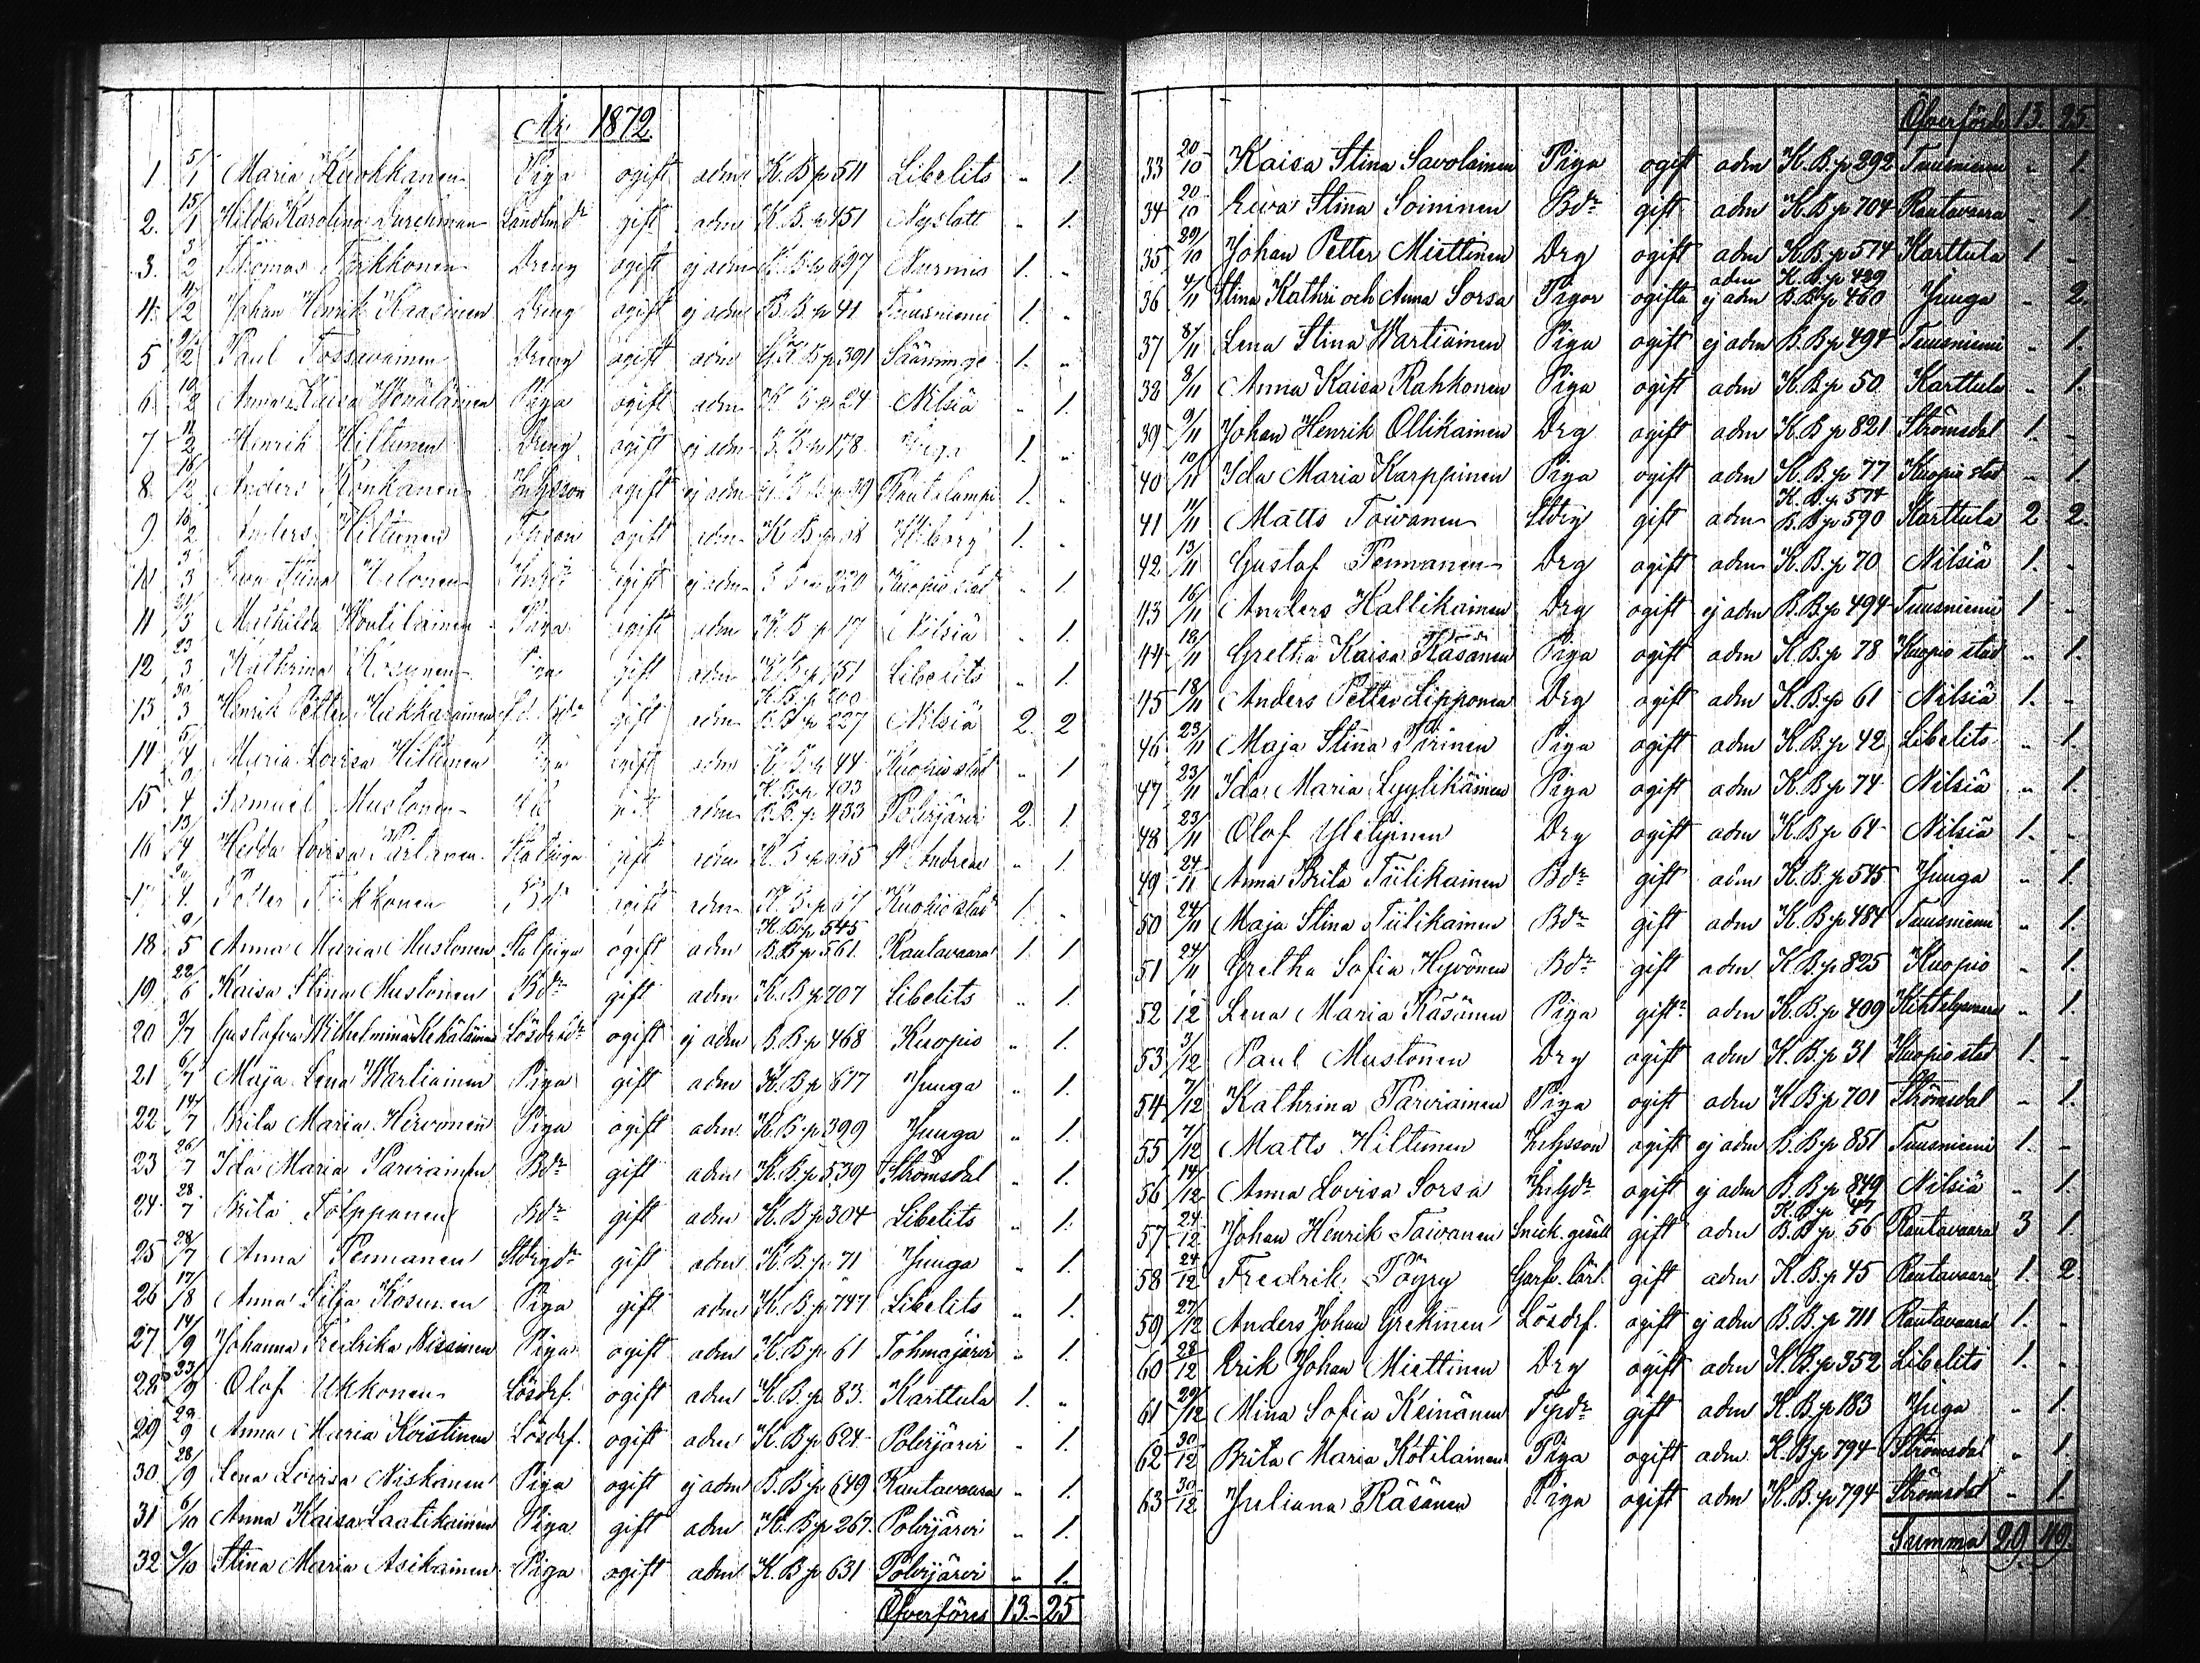 År 1872.
1. 5/1 Maria Kuokkanen Piga ogift adm K.B.p 511 Libelits „ 1.
2. 15/1 Hilda Karolina gift adm K.B.p 451 Nyslott „ 1.
3. 3/2 Thomas Dreng ogift ej adm 697 Nurmis 1. „
4. 4/2 Johan Henrik Dreng ogift ej adm B.B.p 41 Tuusniemi 1. „
5 9/2 Paul Tossavainen Dreng ogift adm K.B.p 391 Sääminge 1. „
6. 10/2 Anna Kaisa Piga ogift adm K.B.p 24 Nilsiä „ 1.
7 11/2 Henrik Hiltunen Dreng ogift ej adm B.B.p 178 1. „
8. 16/2 Anders Inhysson ogift ej adm 39 Rautalampi 1. „
9. 16/2 Anders Hiltunen ogift adm K.B.p 1. „
10 3 Stina ogift ej adm Kuopio stad „ 1.
11 21/3 Mathilda Kontilainen Piga ogift adm K.B.p 17 Nilsiä „ 1.
12 23/3 Kathrina Kosunen Piga gift adm Libelits „ 1.
13 30/3 Henrik Petter gift adm 227 Nilsiä 2. 2
14 5/4 Maria Lovisa Hiltunen Piga ogift adm 44 Kuopio stad „ 1
15 9/4 Samuel Mustonen adm B.B.p 433 Polvijärvi 2. 1.
16 13/4 Hedda Lovisa Partanen gift adm St Andreae „ 1.
17 4 Petter ogift adm Kuopio stad 1. „
18. 9/5 Anna Maria Mustonen ogift adm K.B.p 545 B.B.p 561 Rautavaara 1. 1
19. 22/6 Kaisa Stina Mustonen Bdr gift adm K.B.p 707 Libelits „ 1.
20 3/7 Gustafva Wilhelmina ogift ej adm B.B.p 468 Kuopio „ 1.
21 6/7 Maja Lena Wartiainen Piga gift adm K.B.p 677 Juuga „ 1.
22 14/7 Brita Maria Hirvonen Piga ogift adm K.B.p 399 Juuga „ 1.
23 26/7 Ida Maria Parviainen Bdr gift adm K.B.p 539 Strömsdal „ 1.
24. 28/7 Brita Tolppanen Bdr gift adm K.B.p 304 Libelits „ 1.
25 28/7 Anna Pennanen gift adm K.B.p 71 Juuga „ 1.
26 17/8 Anna Silja Kosunen Piga gift adm K.B.p 747 Libelits „ 1.
27 14/9 Johanna Fredrika Nissinen Piga ogift adm K.B.p 61 Tohmajärvi „ 1.
28 23/9 Olof Ukkonen Lösdrf. ogift adm K.B.p 83. Karttula 1. „
29 29/9 Anna Maria Koistinen Lösdrf. ogift adm K.B.p 624 Polvijärvi „ 1.
30 28/9 Lena Lovisa Niskanen Piga ogift ej adm B.B.p 649 Rautavaara „ 1.
31 6/10 Anna Kaisa Laatikainen Piga gift adm K.B.p 267. Polvijärvi „ 1.
32 9/10 Stina Maria Asikainen Piga ogift adm K.B.p 631 Polvijärvi „ 1.
Öfverföres 13. 25
Öfverförde 13. 25.
33 20/10 Kaisa Stina Savolainen Piga ogift adm K.B.p 292 Tuusniemi „ 1.
34 20/10 Eeva Stina Soininen Bdr gift adm K.B.p 704 Rautavaara „ 1
35 29/10 Johan Petter Miettinen Drg ogift adm K.B.p 574 Karttula 1 „
36 4/11 Stina Kathri och Anna Sorsa Pigor ogifta adm ej adm K.B.p 429 B.B.p 460 Juuga „ 2.
37 8/11 Lena Stina Wartiainen Piga ogift ej adm B.B.p 494 Tuusniemi „ 1.
38 8/11 Anna Kaisa Rahkonen Piga ogift adm K.B.p 50 Karttula „ 1.
39 9/11 Johan Henrik Ollikainen Drg ogift adm K.B.p 821 Strömsdal 1. „
40 10/11 Ida Maria Karppinen Piga ogift adm K.B.p 77 Kuopio stad „ 1.
41 11/11 Matts Toivanen Stdrg gift adm K.B.p 574 B.B.p 590 Karttula 2 2.
42 13/11 Gustaf Pennanen Drg ogift adm K.B.p 70 Nilsiä 1. „
43 16/11 Anders Hallikainen Drg ogift ej adm B.B.p 494 Tuusniemi 1 „
44 18/11 Gretha Kaisa Räsänen Piga ogift adm K.B.p 78 Kuopio stad „ 1.
45 18/11 Anders Petter Lipponen Drg ogift adm K.B.p 61 Nilsiä 1. „
46 23/11 Maja Stina Piirinen Piga ogift adm K.B.p 42 Libelits „ 1.
47 23/11 Ida Maria Lyylikäinen Piga ogift adm K.B.p 74 Nilsiä „ 1.
48 23/11 Olof Drg ogift adm K.B.p 64 Nilsiä 1. „
49 24/11 Anna Brita Tiilikainen Bdr gift adm K.B.p 545 Juuga „ 1.
50 24/11 Maja Stina Tiilikainen Bdr gift adm K.B.p 484 Tuusniemi „ 1.
51 24/11 Gretha Sofia Hyvönen Bdr gift adm K.B.p 825 Kuopio „ 1.
52 1/12 Lena Maria Räsänen Piga gift adm K.B.p 409 „ 1.
53 3/12 Paul Mustonen Drg ogift adm K.B.p 31 Kuopio stad 1. „
54 7/12 Kathrina Parviainen Piga ogift adm K.B.p 701 Strömsdal „ 1.
55 7/12 Matts Hiltunen Inhysson ogift ej adm B.B.p 851 Tuusniemi 1. „
56 14/12 Anna Lovisa Sorsa Inhdr ogift ej adm B.B.p 849 Nilsiä „ 1.
57 24/12 Johan Henrik Toivanen Snick. gesäll gift adm K.B.p 47 B.B.p 56 Rautavaara 3 1.
58 24/12 Fredrik Pöyry Garfv. lärl. gift adm K.B.p 45 Rautavaara 1. 2.
59 27/12 Anders Johan Lösdrf. ogift ej adm B.B.p 711 Rautavaara 1. „
60 28/12 Erik Johan Miettinen Drg ogift adm K.B.p 352 Libelits 1. „
61 29/12 Mina Sofia Keinänen Tpdr gift adm K.B.p 183 Juga „ 1.
62 30/12 Brita Maria Kotilainen Piga ogift adm K.B.p 794 Strömsdal „ 1
63 30/12 Juliana Räsänen Piga ogift adm K.B.p 794 Strömsdal „ 1
Summa 29. 49.